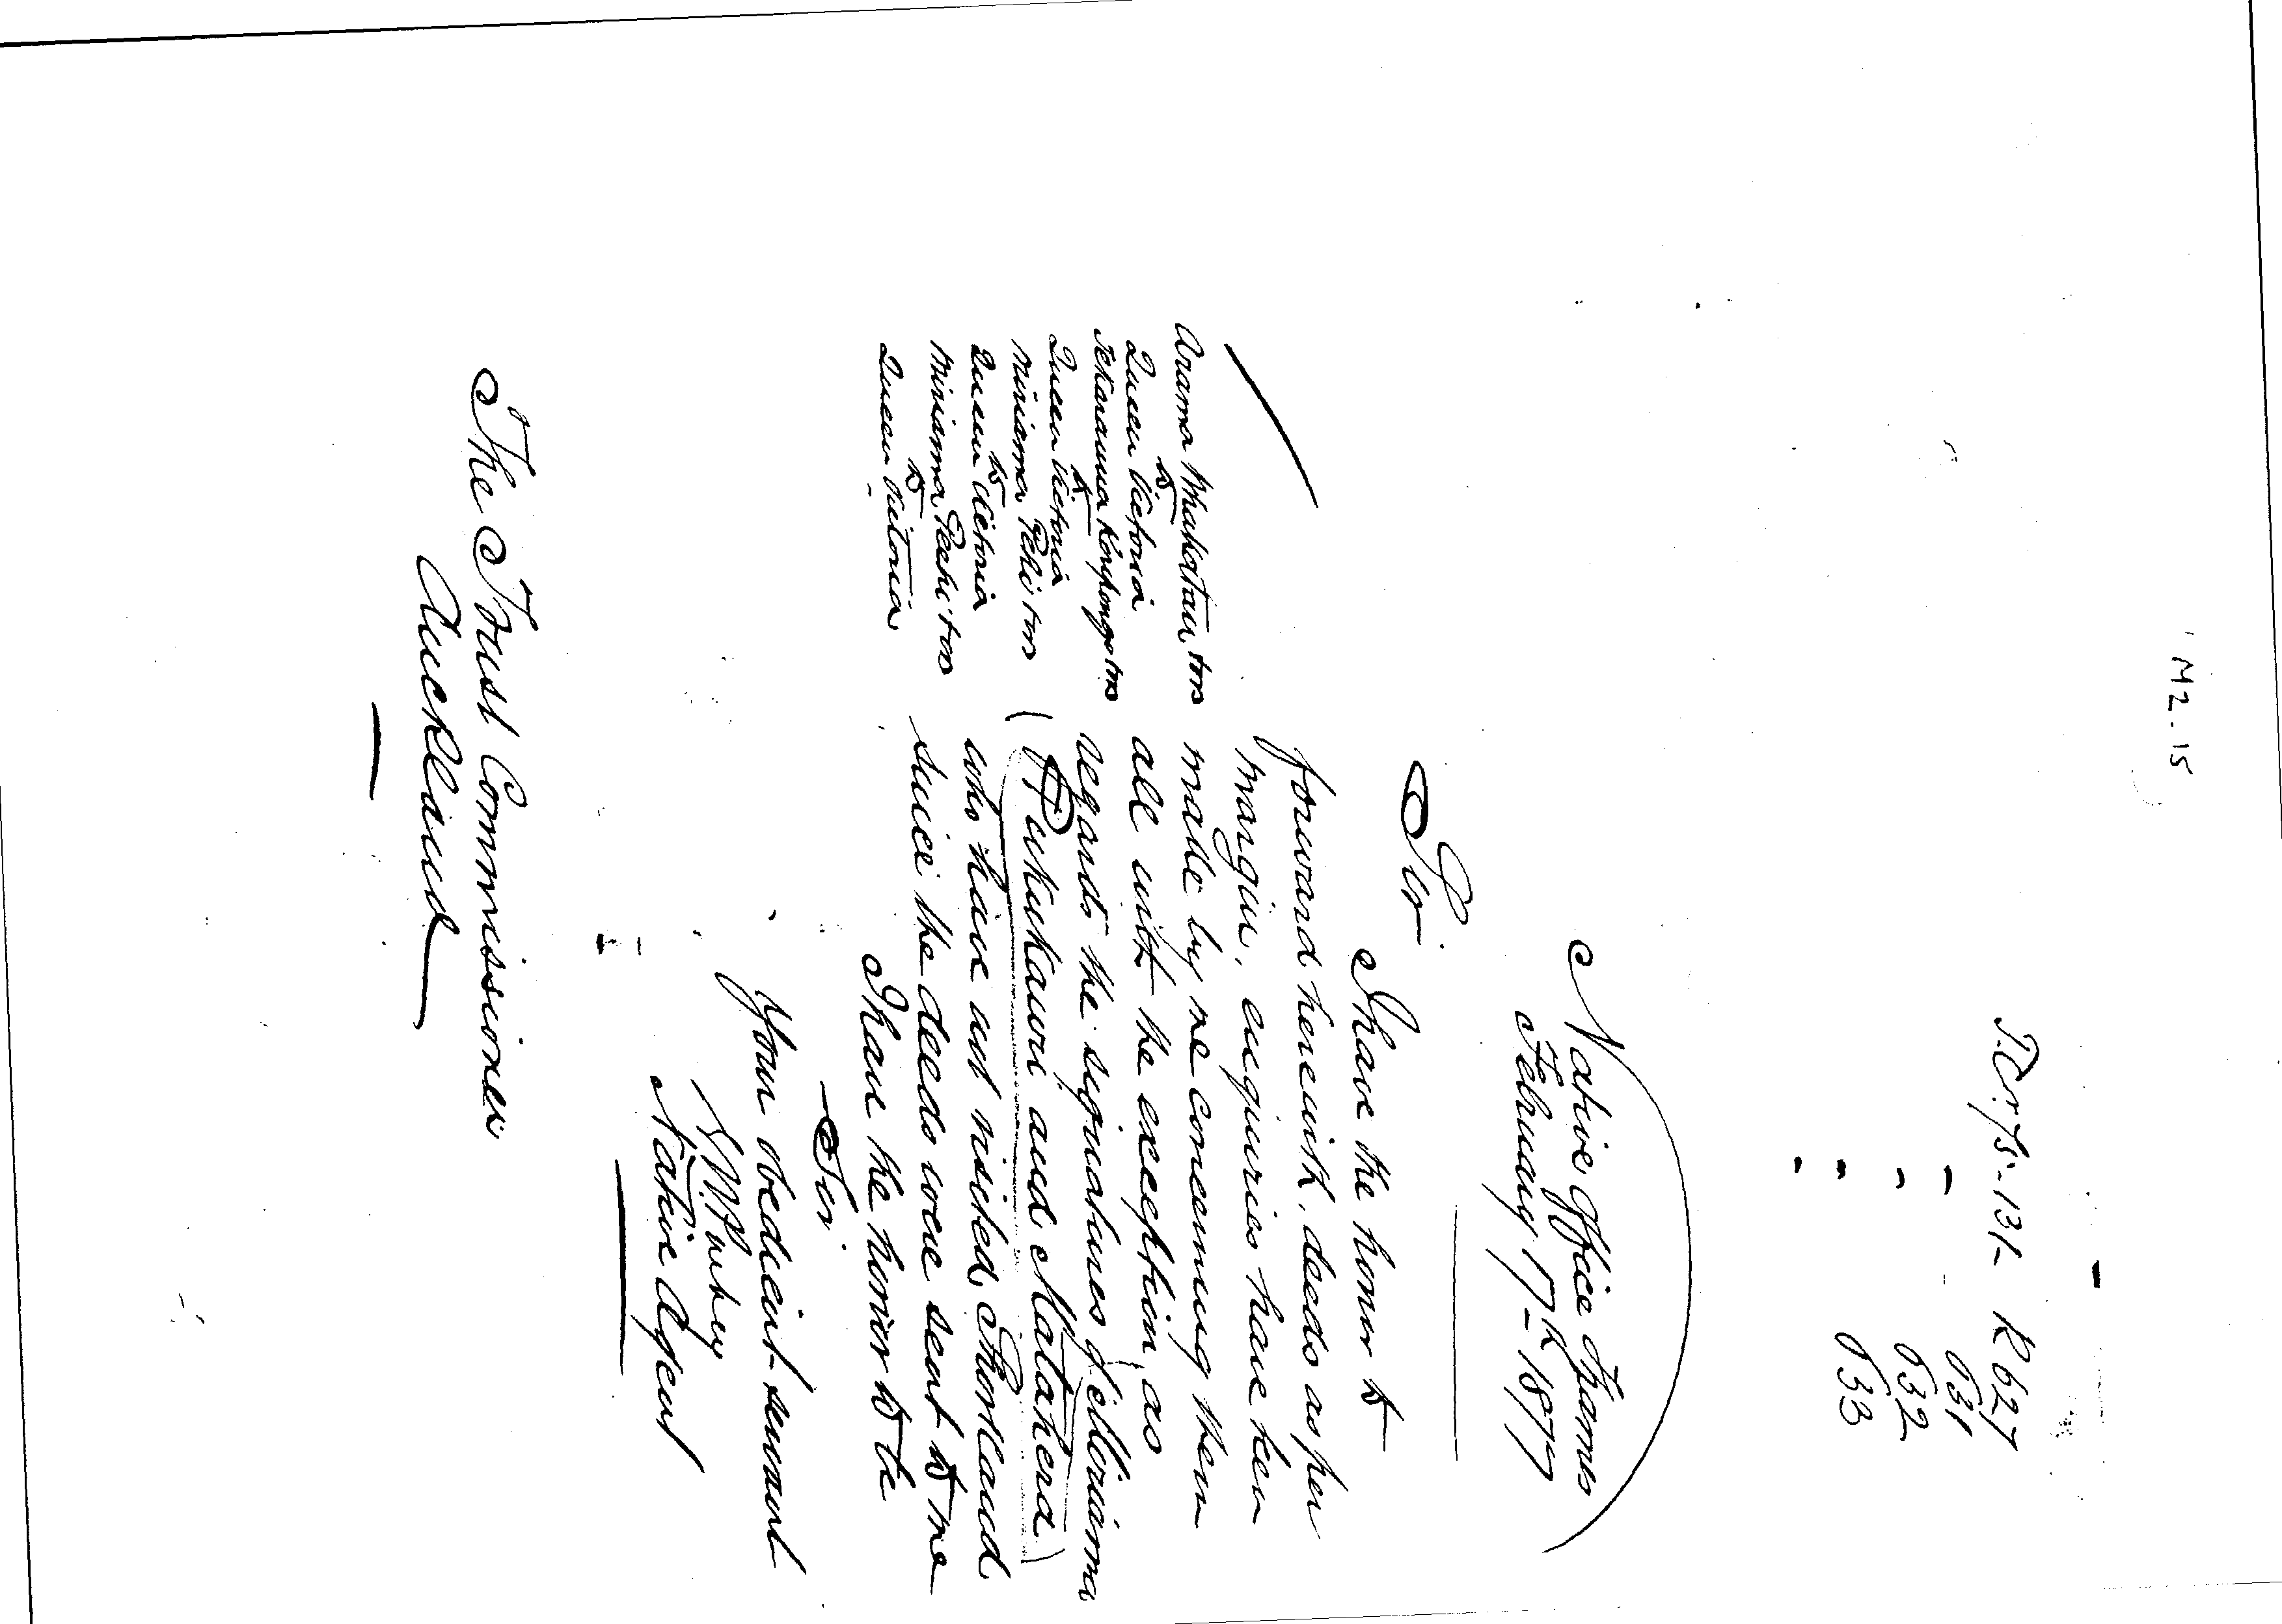 M2.15
T.C. 75-131 R 627
" 631
" 632
" 633
Native Office Thames
February 17th 1877
Sir
I have the honor to
forward herewith, deeds as per
margin, enquiries have been
made by me concerning them
all with the exception, as
regards the signatures of Meriama
(Pukukauri and Matahera)
who have not visited Shortland
since the deeds were sent to me
I have the honor to be
Sir
Your obedient servant
Native Agent
Arama Whakatau, tvs
to
Queen Victoria
tvs
to
Queen Victoria
Miriama Pehi tvs
to
Queen Victoria
Miriama Peehi tvs
to
Queen Victoria
The Trust Commissioner
Auckland